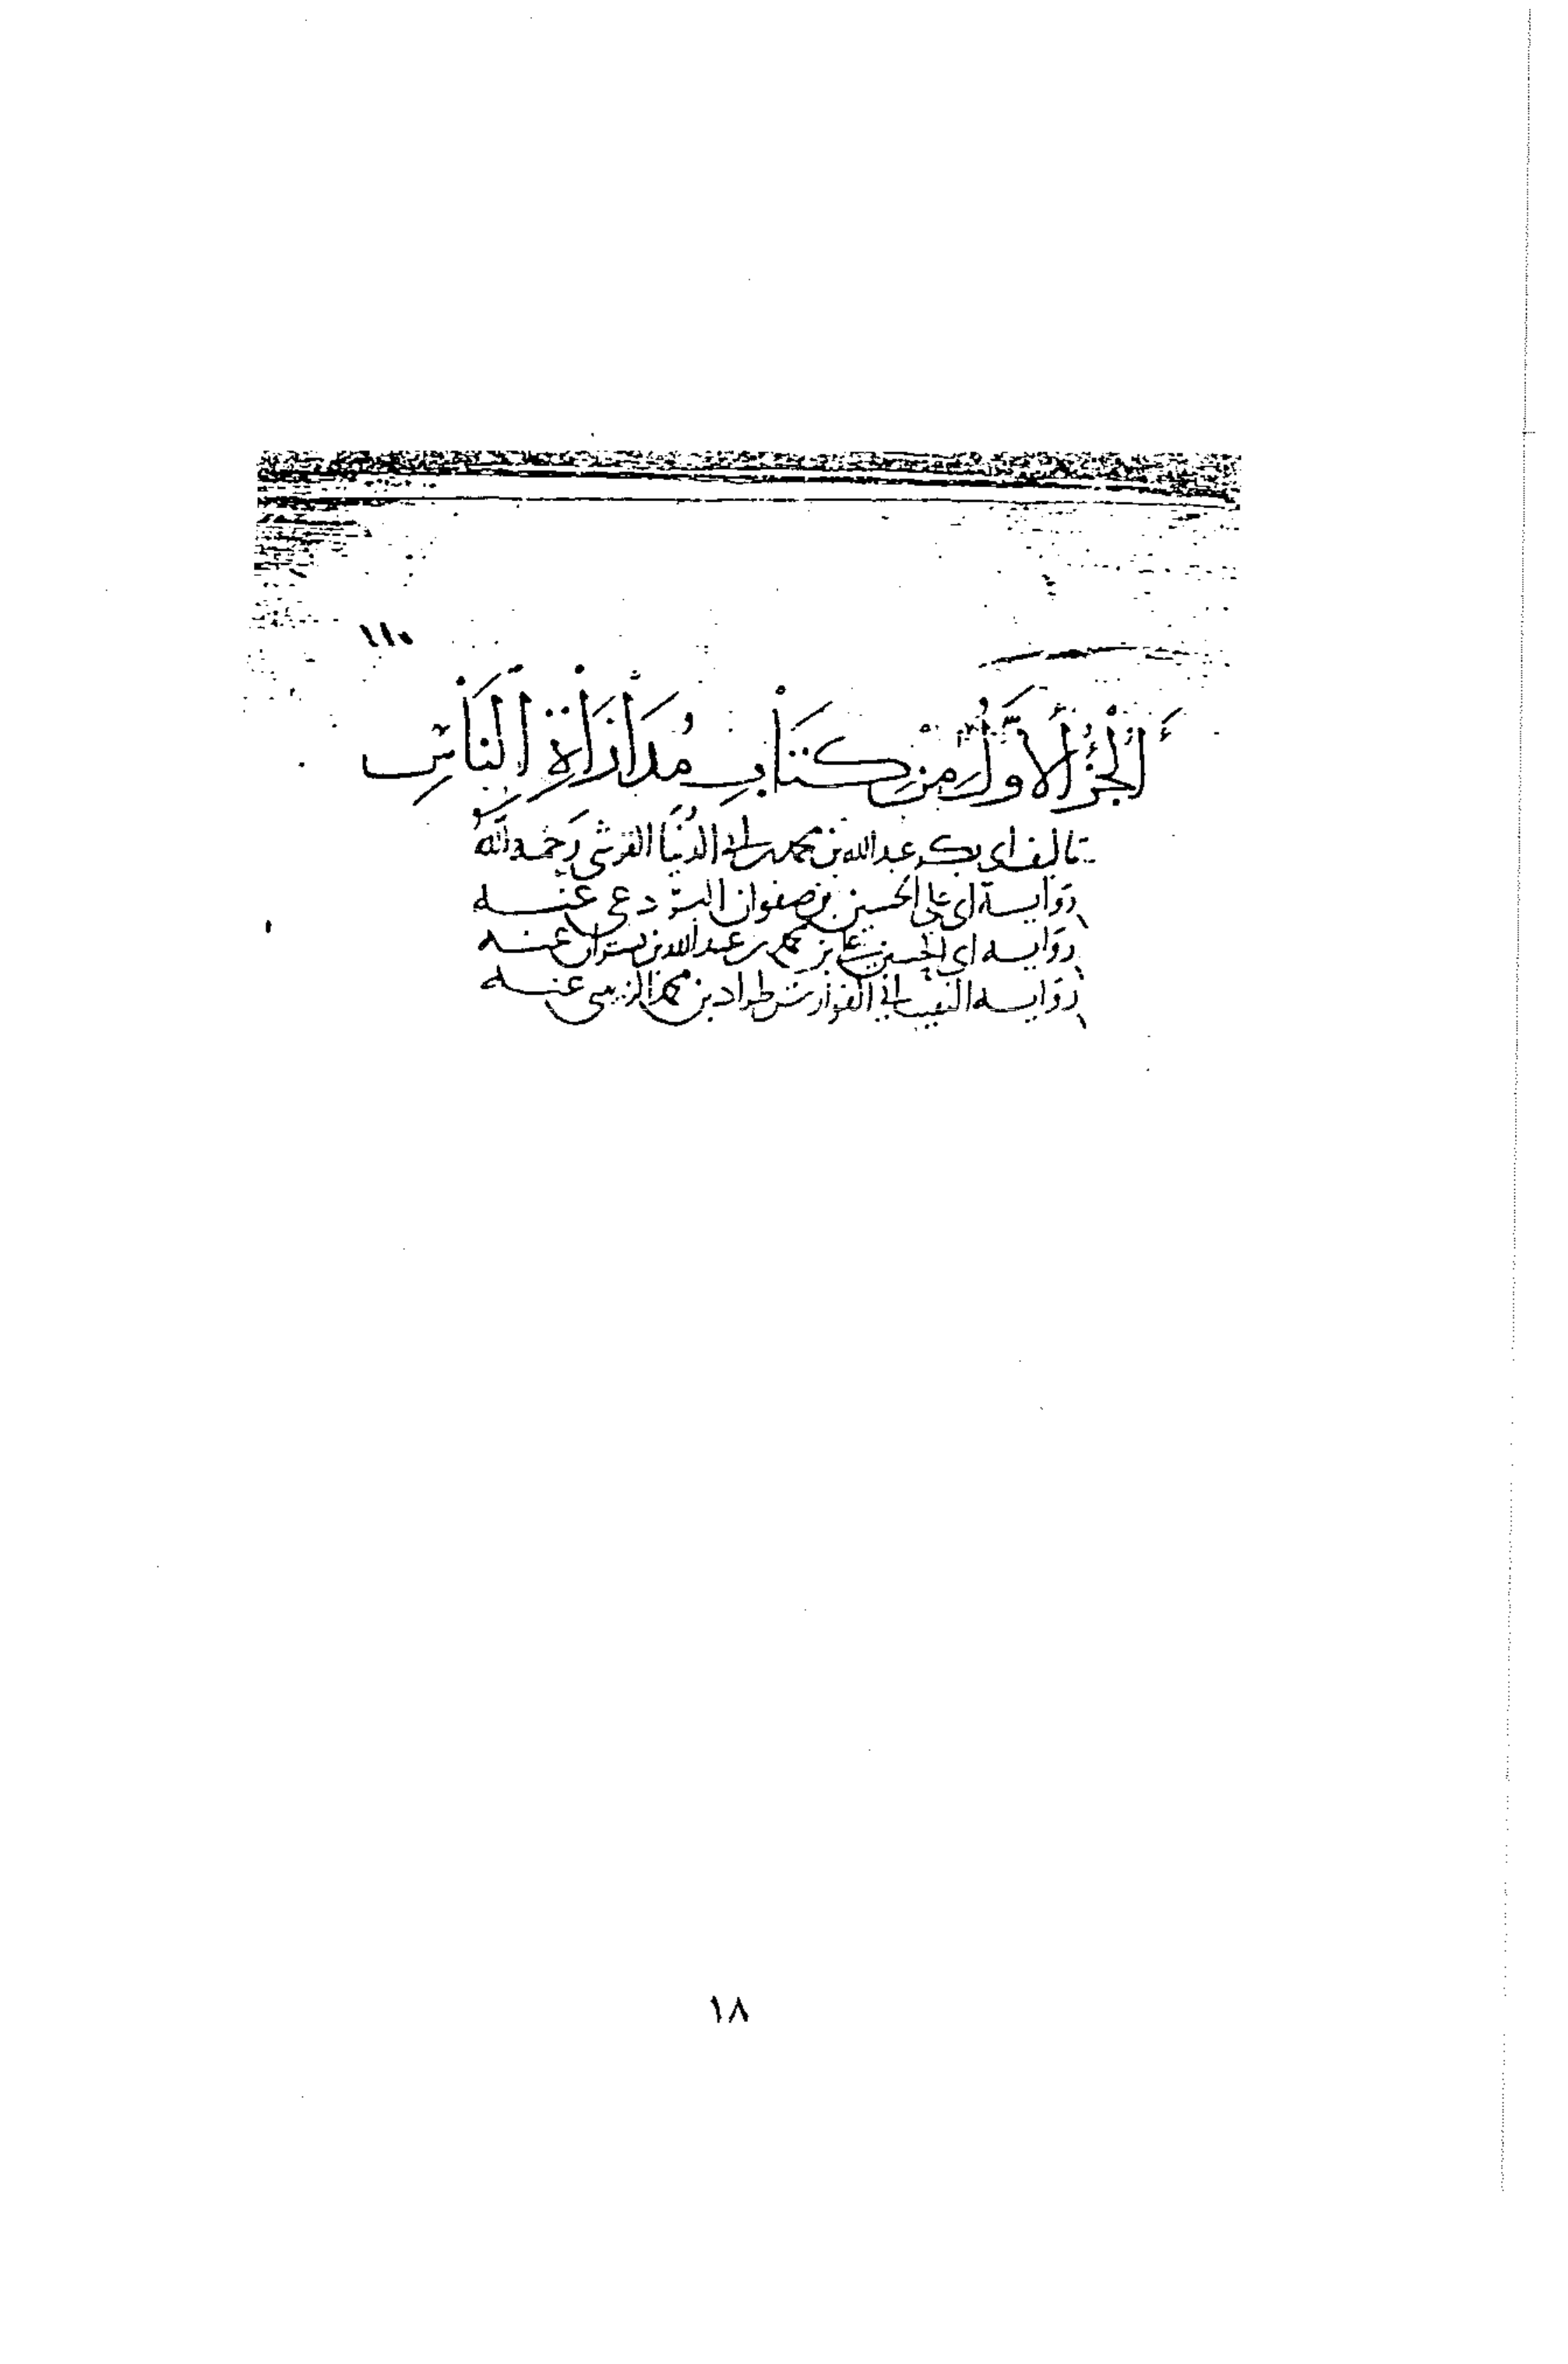 ١١٠
اَلْجُزْءُ الْأَوَّلُ مِنْ كِتَابِ مُدَارَاةِ النَّاسِ
تاليف ابي بكر عبدالله بن محمد بن ابي الدُّنيَا القرشي رَحِمَهُ اللَّهُ
رِوَايـة ابي علي الحسين بن صفوان البرذعي عنـه
رِوَايـه ابي الحسين علي بن محمد بن عبدالله بن بشران عنـه
رِوَايـه النقيب ابي الفوارس طراد بن محمد الزينبي عنـه
١٨